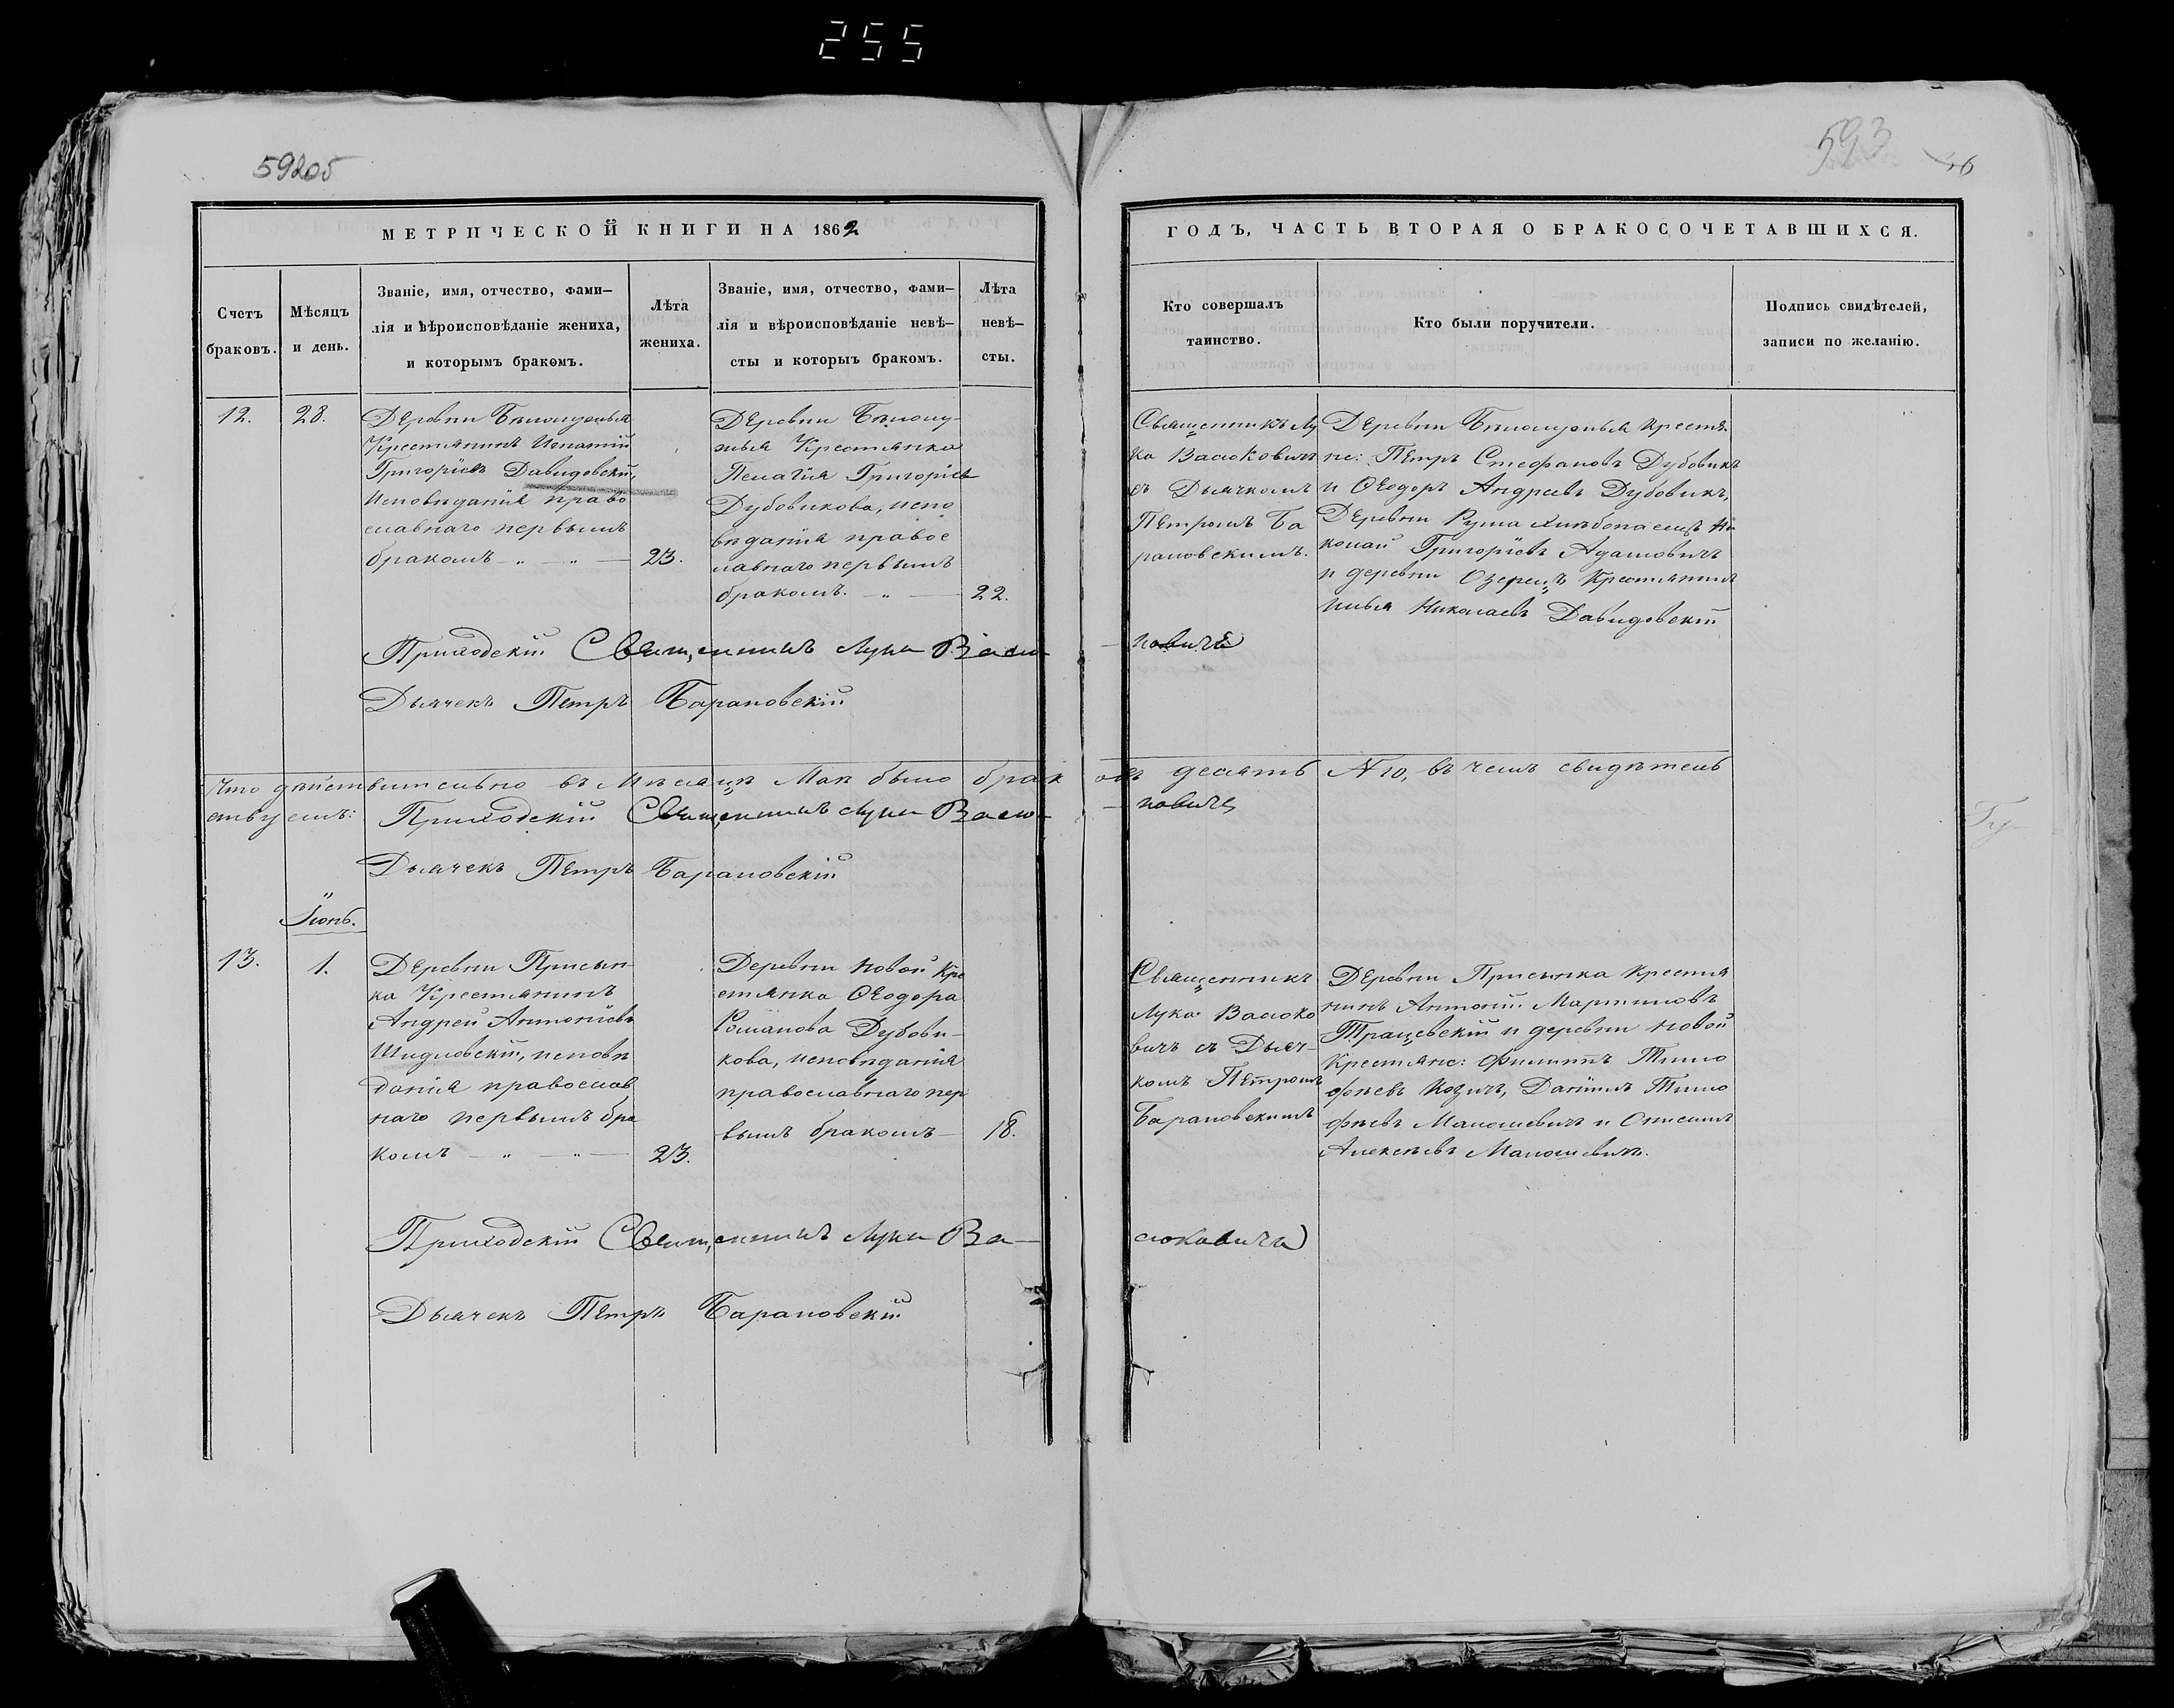 255
592об
593
МЕТРИЧЕСКОЙ КНИГИ НА 1862
ГОДЪ, ЧАСТЬ ВТОРАЯ О БРАКОСОЧЕТАВШИХСЯ.
Счетъ
браковъ.
Мѣсяцъ
и день.
Званіе, имя, отчество, фами-
лія и вѣроисповѣданіе жениха,
и которымъ бракомъ.
Лѣта
жениха.
Званіе, имя, отчество, фами-
лія и вѣроисповѣданіе невѣ-
сты и которыъ бракомъ.
Лѣта
невѣ-
сты.
Кто совершалъ
таинство.
Кто были поручители.
Подпись свидѣтелей,
записи по желанію.
12.
28.
Деревни
Крестьянинъ Игнатій
Григоріевъ Давидовскій,
Исповѣданія право
славнаго первымъ
бракомъ
23.
Деревни
Крестьянка
Пелагія Григоріев
Дубовикова, испо
вѣданія правос
лавнаго первымъ
бракомъ.
22.
Священникъ Лу
ка Васюковичъ
съ Дьячкомъ
Петромъ Ба
рановскимъ.
Деревни Крестья-
не: Петръ Стефановъ Дубовикъ
и Ѳеодоръ Андреевъ Дубовикъ,
Деревни Рума Ни
колай Григоріевъ Адамовичъ
и деревни Озерецъ Крестьянинъ
Илья Николаевъ Давидовскій
Приходскій Священникъ Лука Васю-
ковичъ
Дьячекъ Петръ Барановскій
Что дѣйствительно въ Мѣсяцѣ Маѣ было брак
овъ десять № 10, въ чемъ свидѣтель
ствуемъ: Приходскій Священникъ Лука Васю-
ковичъ
Дьячекъ Петръ Барановскій
Іюнь.
13.
1.
Деревни Присын-
ка Крестьянинъ
Андрей Антоніевъ
Шидловскій, исповѣ
данія православ
наго первымъ бра
комъ
23.
Деревни Новой Кре
стьянка Ѳеодора
Романова Дубови-
кова, исповѣданія
православнаго пер
вымъ бракомъ
18.
Священникъ
Лука Васюко
вичъ съ Дьяч-
комъ Петромъ
Барановскимъ
Деревни Присынка Крестья
нинъ Антоній Мартиновъ
Трацевскій и деревни Новой
Крестьяне: Филиппъ Тимо
фѣевъ Козичъ, Даніилъ Тимо
фѣевъ Маношевичъ и Онисимъ
Алексѣевъ Маношевичъ.
Приходскій Священникъ Лука Ва-
сюковичъ
Дьячекъ Петръ Барановскій